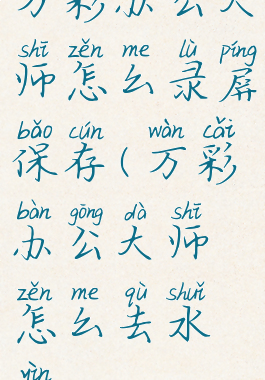 万彩办公大
shī zěn me lù píng
师怎么录屏
bǎo cún wàn cǎi
保存(万彩
bàn gōng dà shī
办公大师
zěn me qù shuǐ
怎么去水
yìn